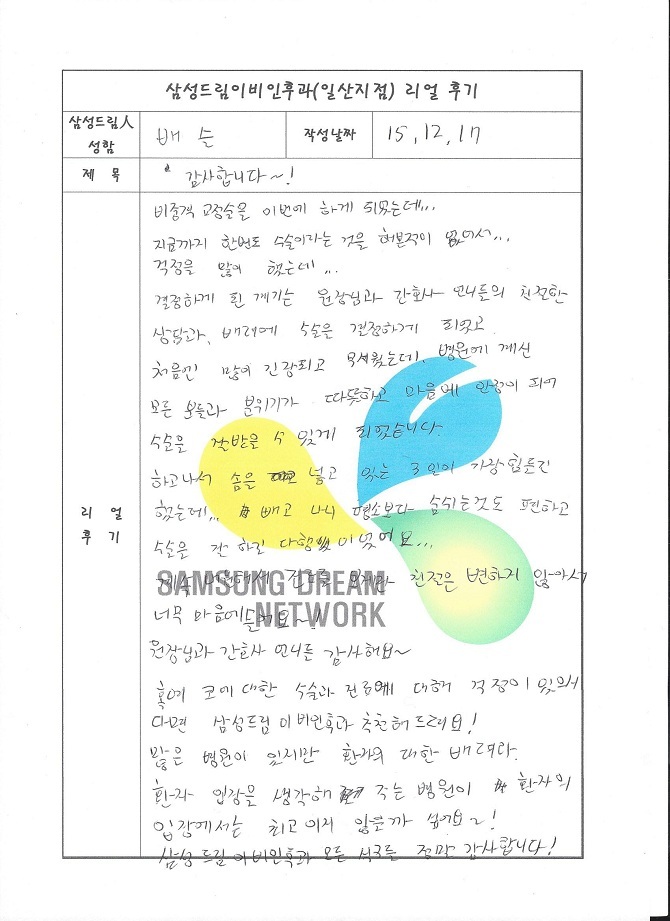 삼성드림이비인후과(일산지점) 리얼 후기
삼성드림人 성함 배슬 작성날짜 15, 12, 17
제 목 감사합니다~!
리 얼 후 기
비중격 교정술을 이번에 하게 되었는데...
지금까지 한번도 수술이라는 것을 해본적이 없어서...
걱정을 많이 했는데...
결정하게 된 계기는 원장님과 간호사 언니들의 친절한
상담과, 배려에 수술은 결정하게 되었고
처음엔 많이 긴장되고 무서웠는데, 병원에 계신
모든 분들과 분위기가 따뜻하고 마음에 안정이 되어
수술을 잘받을 수 있게 되었습니다.
하고나서 솜을 넣고 있는 3일이 가장 힘들긴
했는데... 빼고 나니 평소보다 숨쉬는것도 편하고
수술은 잘 하길 다행이었어요...
계속 친절은 변하지 않아서
너무 마음에들어요~!
SAMSUNG DREAM
NETWORK
원장님과 간호사 언니들 감사해요~
혹여 코에 대한 수술과 진료에 대해 걱정이 있으시
다면 삼성드림이비인후과 추천해 드려요!
많은 병원이 있지만 환자의 대한 배려와.
환자 입장을 생각해 주는 병원이 환자의
입장에서는 최고이지 않을까 싶어요~!
삼성드림이비인후과 모든 식구들 정말 감사합니다!